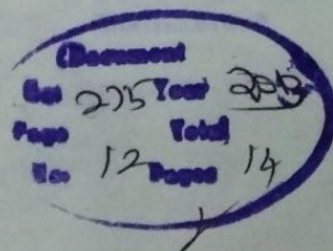 (Document
No: 275 Year 2013
Page Total
No: 12 Pages 14